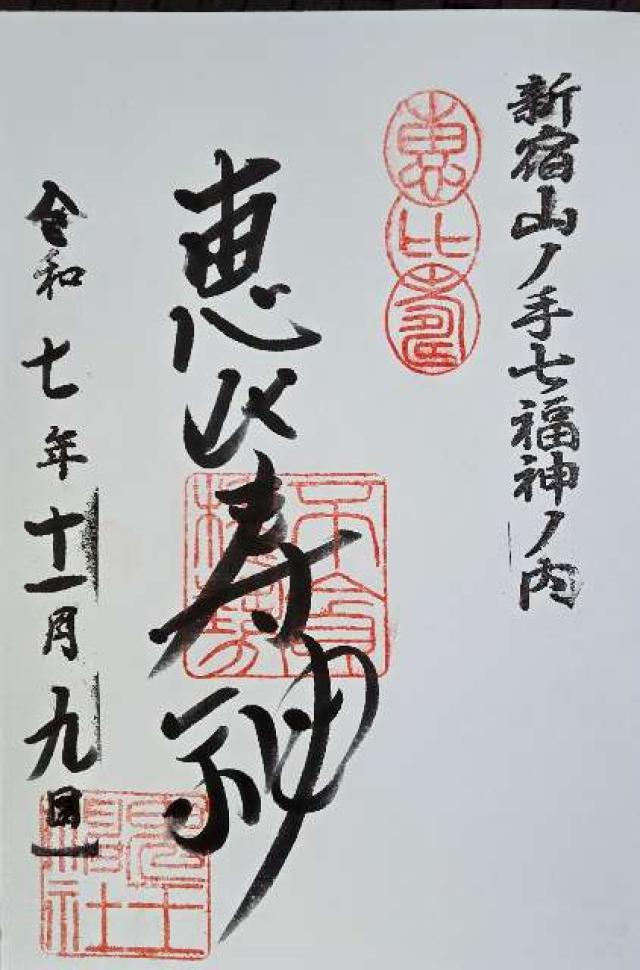 新宿山ノ手七福神ノ内
恵比寿
恵比寿神
令和七年十一月九日